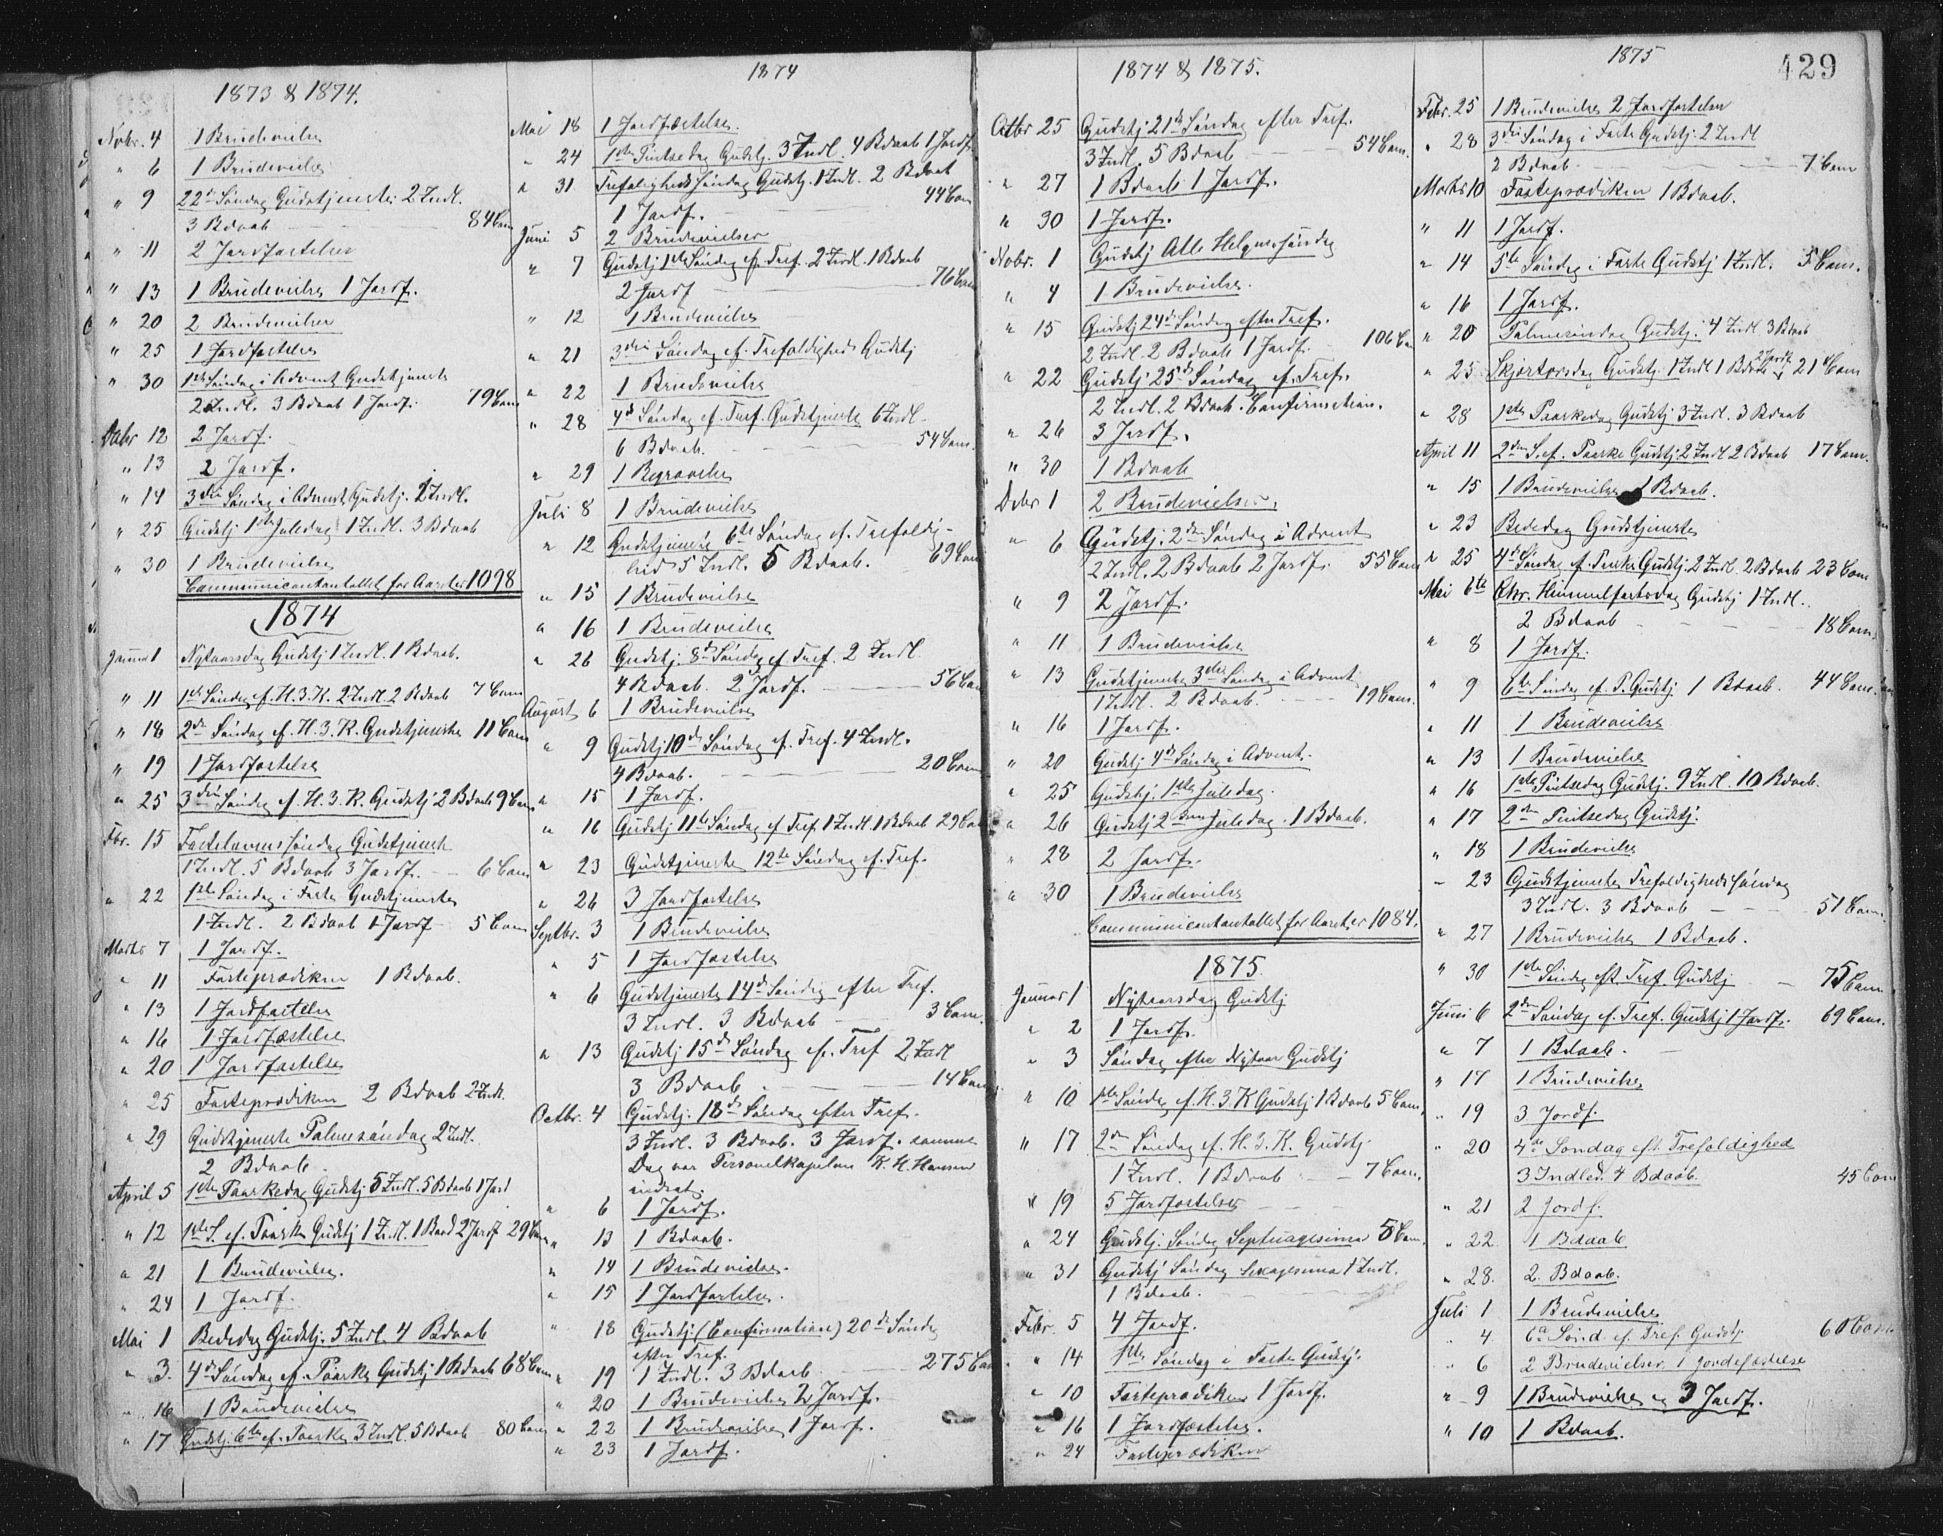 1873 & 1874.
Novbr. 4 1 Brudevielse
" 6 1 Brudevielse
" 9 22de Søndag Gudstjeneste: 2 Indl.
3 Bdaab 84 Com
" 11 2 Jordfæstelser
" 13 1 Brudevielse 1 Jordf.
" 20 2 Brudevielser
" 25 1 Jordfæstelse
" 30 1ste Søndag i Advent Gudstjeneste
2 Indl. 3 Bdaab 1 Jordf. 79 Com
Decbr 12 2 Jordf.
" 13 2 Jordf.
" 14 3die Søndag i Advent Gudstj. 2 Indl.
" 25 Gudstj 1ste Juledag 1 Indl. 3 Bdaab
" 30 1 Brudevielse
Communicantantallet for Aaret er 1098
1874
Januar 1 Nytaarsdag Gudstj 1 Indl. 1 Bdaab.
" 11 1ste Søndag ef. H. 3. K. 2 Indl. 2 Bdaab 7 Com
" 18 2den Søndag ef. H. 3. K. Gudstjeneste 11 Com
" 19 1 Jordfæstelse
" 25 3die Søndag ef. H. 3. K. Gudstj 2 Bdaab 9 Com
Fbr. 15 Fastelavenssøndag Gudstjeneste
1 Indl. 5 Bdaab 3 Jordf. 6 Com
" 22 1ste Søndag i Faste Gudstjeneste
1 Indl. 2 Bdaab 1 Jordf 5 Com
Marts 7 1 Jordf.
" 11 Fasteprædiken 1 Bdaab.
" 13 1 Jordfæstelse
" 16 1 Jordfæstelse
" 20 1 Jordfæstelse
" 25 Fasteprædiken 2 Bdaab 2 Indl.
" 29 Gudstjeneste Palmesøndag 2 Indl.
2 Bdaab.
April 5 1ste Paaskedag Gudstj 5 Indl. 5 Bdaab 1 Jord
" 12 1ste S. ef. Paaske Gudstj 1 Indl. 1 Baab 2 Jordf 29 Com
" 21 1 Brudevielse.
" 24 1 Jordf.
Mai 1 Bededag Gudstj. 5 Indl. 4 Bdaab
" 3. 4de Søndag ef. Paaske Gudstj 1 Bdaab 68 Com
" 16 1 Brudevielse
" 17 Gudstj. 6te ef. Paaske 3 Indl. 5 Bdaab 80 Com
1874
Mai 18 1 Jordfæstelse.
" 24 1ste Pintsedag Gudstj. 3 Indl. 4 Bdaab 1 Jordf.
" 31 Trefoligheds Søndag Gudstj. 1 Indl. 2 Bdaab
1 Jordf. 44 Com
Juni 5 2 Brudevielser
" 7 Gudstj 1ste Søndag ef. Tref. 2 Indl. 1 Bdaab
2 Jordf 76 Com
" 12 1 Brudevielse
" 21 3die Søndag ef. Trefoldigheds Gudstj
" 22 1 Brudevielse
" 28 4de Søndag ef. Tref. Gudstjeneste 6 Indl.
6 Bdaab. 54 Com.
" 29 1 Begravelse
Juli 8 1 Brudevielse
" 12 Gudstjeneste 6te Søndag ef. Trefoldig-
hed 5 Indl. 5 Bdaab. 69 Com
" 15 1 Brudevielse
" 16 1 Brudevielse
" 26 Gudstj. 8de Søndag ef Tref. 2 Indl.
4 Bdaab. 2 Jordf. 56 Com
August 6 1 Brudevielse
" 9 Gudstj 10de Søndag ef. Tref. 4 Indl.
4 Bdaab. 20 Com
" 15 1 Jordf.
" 16 Gudstj 11te Søndag ef Tref 1 Indl. 1 Bdaab 29 Com
" 23 Gudstjeneste 12te Søndag ef. Tref.
" 26 3 Jordfæstelse
Septbr. 3 1 Brudevielse
" 5 1 Jordfæstelse
" 6 Gudstjeneste 14de Søndag efter Tref.
3 Indl. 3 Bdaab 3 Com.
" 13 Gudstj 15de Søndag ef. Tref 2 Indl
3 Bdaab 14 Com
Octbr. 4 Gudstj. 18de Søndag efter Tref.
3 Indl. 3 Bdaab. 3 Jordf. samme
Dag var Personelkapelan K. H. Hansen
indsat.
" 6 1 Jordf.
" 13 1 Bdaab.
" 14 1 Brudevielse.
" 15 1 Jordfæstelse.
" 18 Gudstj (Confirmation) 20de Søndag
efter Tref.
" 19 1 Indl. 3 Bdaab 275 Com
" 20 1 Brudevielse 2 Jordf.
" 22 1 Brudevielse 1 Jordf.
" 23 1 Jordf.
1874 & 1875.
Octbr 25 Gudstj. 21de Søndag efter Tref.
3 Indl. 5 Bdaab 54 Com.
" 27 1 Bdaab 1 Jordf.
" 30 1 Jordf.
Novbr. 1 Gudstj Alle Helgnessøndag
" 4 1 Brudevielse.
" 15 Gudstj 24de Søndag efter Tref.
2 Indl. 2 Bdaab 1 Jordf. 106 Co
" 22 Gudstj. 25de Søndag ef. Tref.
2 Indl. 2 Bdaab. Confirmation.
" 26 3 Jordf.
" 30 1 Bdaab
Debr 1 2 Brudevielser.
" 6 Gudstj. 2den Søndag i Advent
2 Indl. 2 Bdaab 2 Jordf. 55 Com
" 9 2 Jordf.
" 11 1 Brudevielse
" 13 Gudstjeneste 3die Søndag i Advent
1 Indl. 2 Bdaab. 19 Com.
" 16 1 Jordf.
" 20 Gudstj 4de Søndag i Advent.
" 25 Gudstj. 1ste Juledag.
" 26 Gudstj 2den Juledag. 1 Bdaab.
" 28 2 Jordf.
" 30 1 Brudevielse
Communicantantallet for Aaret er 1084.
1875.
Januar 1 Nytaarsdag Gudstj
" 2 1 Jordf.
" 3 Søndag efter Nytaar Gudstj
" 10 1ste Søndag ef. H. 3. K Gudstj 1 Bdaab 5 Com.
" 17 2den Søndag ef. H. 3. K. Gudstj.
1 Indl. 1 Bdaab 7 Com.
" 19 5 Jordfæstelser
" 24 Gudstj. Søndag Septuagesima 8 Com.
" 31 Gudstj Søndag Sexagesima 1 Indl.
1 Bdaab.
Febr. 5 4 Jordf.
" 14 1ste Søndag i Faste Gudstj.
" 10 Fasteprædiken 1 Jordf.
" 16 1 Jordfæstelse.
" 24 Fasteprædiken
1875
429
Febr. 25 1 Brudevielse 2 Jordfæstelser
" 28 3die Søndag i Faste Gudstj. 2 Indl
2 Bdaab 7 Com
Marts 10 Fasteprædiken 1 Bdaab.
" 11 1 Jordf.
" 14 5te Søndag i Faste Gudstj 1 Indl. 5 Com.
" 16 1 Jordf.
" 20 Palmesøndag Gudstj. 4 Indl 3 Bdaab
" 25 Skjærtorsdag Gudstj. 1 Indl 1 Bdaab 2 Jordf. 21 Com
" 28 1ste Paaskedag Gudstj 3 Indl. 3 Bdaab
April 11 2den S. ef. Paaske Gudstj 2 Indl 2 Bdaab 17 Com.
" 15 1 Brudevielse 1 Bdaab.
" 23 Bededag Gudstjeneste
" 25 4de Søndag ef. Paaske Gudstj. 2 Indl 2 Bdaab 23 Com
Mai 6te Chr. Himmelfartsdag Gudstj 1 Indl.
2 Bdaab 18 Com.
" 8 1 Jordf.
" 9 6te Søndag ef. P. Gudstj. 1 Bdaab. 44 Com.
" 11 1 Brudevielse
" 13 1 Brudevielse
" 16 1ste Pintsedag Gudstj. 9 Indl. 10 Bdaab.
" 17 2den Pintsedag Gudstj.
" 18 1 Brudevielse
" 23 Gudstjeneste Trefoldigheds Søndag
3 Indl. 3 Bdaab 51 Com.
" 27 1 Brudevielse 1 Bdaab.
" 30 1ste Søndag eft. Tref. Gudstj 75 Com
Juni 6 2den Søndag ef. Tref. Gudstj 1 Jordf. 69 Com.
" 7 1 Bdaab.
" 17 1 Brudevielse
" 19 3 Jordf.
" 20 4de Søndag eft. Trefoldighed
3 Indled. 4 Bdaab. 45 Com
" 21 2 Jordf.
" 22 1 Bdaab
" 28. 2 Bdaab.
Juli 1 1 Brudevielse
" 4 6te Sønd ef. Tref. Gudstj. 60 Com
" 6 2 Brudevielser 1 Jordefæstelse
" 9 1 Brudevielse og 3 Jordf.
" 10 1 Bdaab.